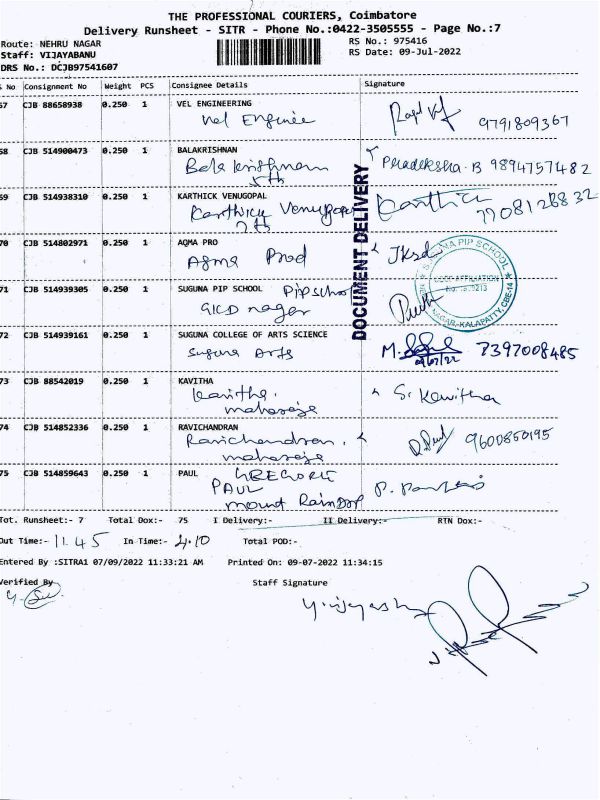 THE PROFESSIONAL COURIERS, Coimbatore
Delivery Runsheet - SITR - Phone No.:0422-3505555 - Page No.:7
Route: NEHRU NAGAR RS No.: 975416
Staff: VIJAYABANU RS Date: 09-Jul-2022
DRS No.: DCJB97541607
s No Consignment No Weight PCS Consignee Details Signature
67 CJB 88658938 0.250 1 VEL ENGINEERING
Vel Enginee 9791809367
68 CJB 514900473 0.250 1 BALAKRISHNAN
Bala krishnan Pradeksha.B 9894757482
69 CJB 514938310 0.250 1 KARTHICK VENUGOPAL
Karthick Venugopal Karthick 7708128832
7th
70 CJB 514802971 0.250 1 AQMA PRO
Aqma Prod
71 CJB 514939305 0.250 1 SUGUNA PIP SCHOOL Pipschool
nagar
72 CJB 514939161 0.250 1 SUGUNA COLLEGE OF ARTS SCIENCE
Suguna Arts 7397008485
09/07/22
73 CJB 88542019 0.250 1 KAVITHA
Kavitha. S. Kavitha
maharaja
74 CJB 514852336 0.250 1 RAVICHANDRAN
Ravichandran. 9600850195
maharaja
75 CJB 514859643 0.250 1 PAUL GREGORIE
PAUL
mount RainDrop
DOCUMENT DELIVERY
SUGUNA PIP SCHOOL
CBSE AFFILIATION
NEHRU NAGAR, KALAPATTY, CBE-14
Tot. Runsheet:- 7 Total Dox:- 75 I Delivery:- II Delivery:- RTN Dox:-
Out Time:- 11.45 In Time:- 4.10 Total POD:-
Entered By :SITRA1 07/09/2022 11:33:21 AM Printed On: 09-07-2022 11:34:15
Verified By Staff Signature